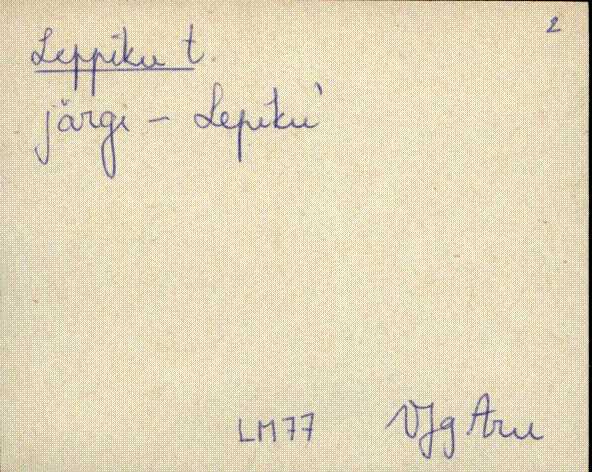 2
Leppiku t.
järgi – Lepiku`
LM77 VJg Aru